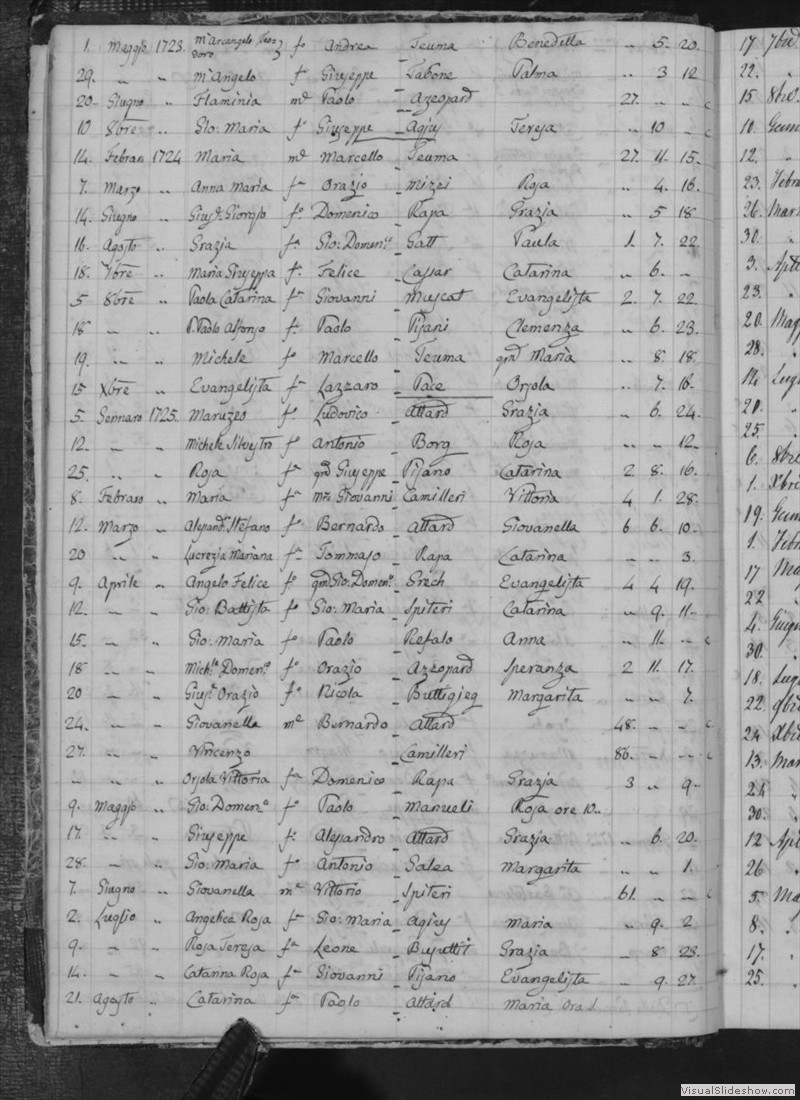 1. Maggio 1723. Mro Arcangelo Teo-doro fo Andrea Teuma Benedetta .. 5. 20.
29. .. .. Mro Angelo fo Giuseppe Tabone Palma .. 3 12
20. Giugno .. Flaminia me Paolo Azzopard 27. .. ..
10 8bre .. Gio: Maria fo Giuseppe Agius Teresa .. 10 ..
14. Febraro 1724 Maria me Marcello Teuma 27. 11. 15.
7. Marzo .. Anna Maria fa Orazio Mizzi Rosa .. 4. 16.
14. Giugno .. Gius: Giorgio fo Domenico Rapa Grazia .. 5 18
16. Agosto .. Grazia fa Gio: Domenco Gatt Paula 1. 7. 22
18. 7bre .. Maria Giuseppa fa Felice Cassar Catarina .. 6. ..
5 8bre .. Paola Catarina fa Giovanni Muscat Evangelista 2. 7. 22.
18 .. .. P. Paolo Alfonso fo Paolo Pisani Clemenza .. 6. 23.
19. .. .. Michele fo Marcello Teuma qm Maria .. 8. 18.
15 Xbre .. Evangelista fa Lazzaro Pace Orsola .. 7. 16.
5. Gennaro 1725. Maruzeo fo Ludovico Attard Grazia .. 6. 24.
12. .. .. Michele Silvestro fo Antonio Borg Rosa .. .. 12.
25. .. .. Rosa fa qm Giuseppe Pisano Catarina 2 8. 16.
8. Febraro .. Maria fa mro Giovanni Camilleri Vittoria 4 1. 28.
12. Marzo .. Alesandro Stefano fo Bernardo Attard Giovanella 6 6. 10.
20 .. .. Lucrezia Mariana fa Tommaso Rapa Catarina .. .. 3.
9. Aprile .. Angelo Felice fo qm Gio: Domenco Grech Evangelista 4 4 19.
12. .. .. Gio: Battista fo Gio: Maria Spiteri Catarina .. 9. 11.
15. .. .. Gio: Maria fo Paolo Refalo Anna .. 11. ..
18 .. .. Michle Domenco fo Orazio Azzopard Speranza 2 11. 17.
20 .. .. Gius: Orazio fo Nicola Buttigieg Margarita .. .. 7.
24. .. .. Giovanella me Bernardo Attard 48. .. ..
27. .. .. Vincenzo Camilleri 86. .. ..
.. .. .. Orsola Vittoria fa Domenico Rapa Grazia 3 .. 9.
9. Maggio .. Gio: Domenco fo Paolo Manueli Rosa ore 10..
17. .. .. Giuseppe fo Alessandro Attard Grazia .. 6. 20.
28. .. .. Gio: Maria fo Antonio Galea Margarita .. .. 1.
7. Giugno .. Giovanella me Vittorio Spiteri 61. .. ..
2. Luglio .. Angelica Rosa fa Gio: Maria Agius Maria .. 9. 2
9. .. .. Rosa Teresa fa Leone Busuttil Grazia .. 8 23.
14. .. .. Catarina Rosa fa Giovanni Pisano Evangelista .. 9. 27.
21. Agosto .. Catarina fa Paolo Attard Maria Ora 1
17 7bre
22.
15 8bre
10. Genn
12.
23. Febra
26. Mar
30.
3. Apl
23.
20. Magg
28.
14. Lug
20.
25.
6. 8bre
1. Xbre
19. Genn
1. Febr
17 Ma
22
4. Giugn
30.
18. Lug
22. 9bre
24 Xbre
13. Mar
24
30.
12 Apl
26
5. Ma
8.
17.
25.
VisualSlideshow.com